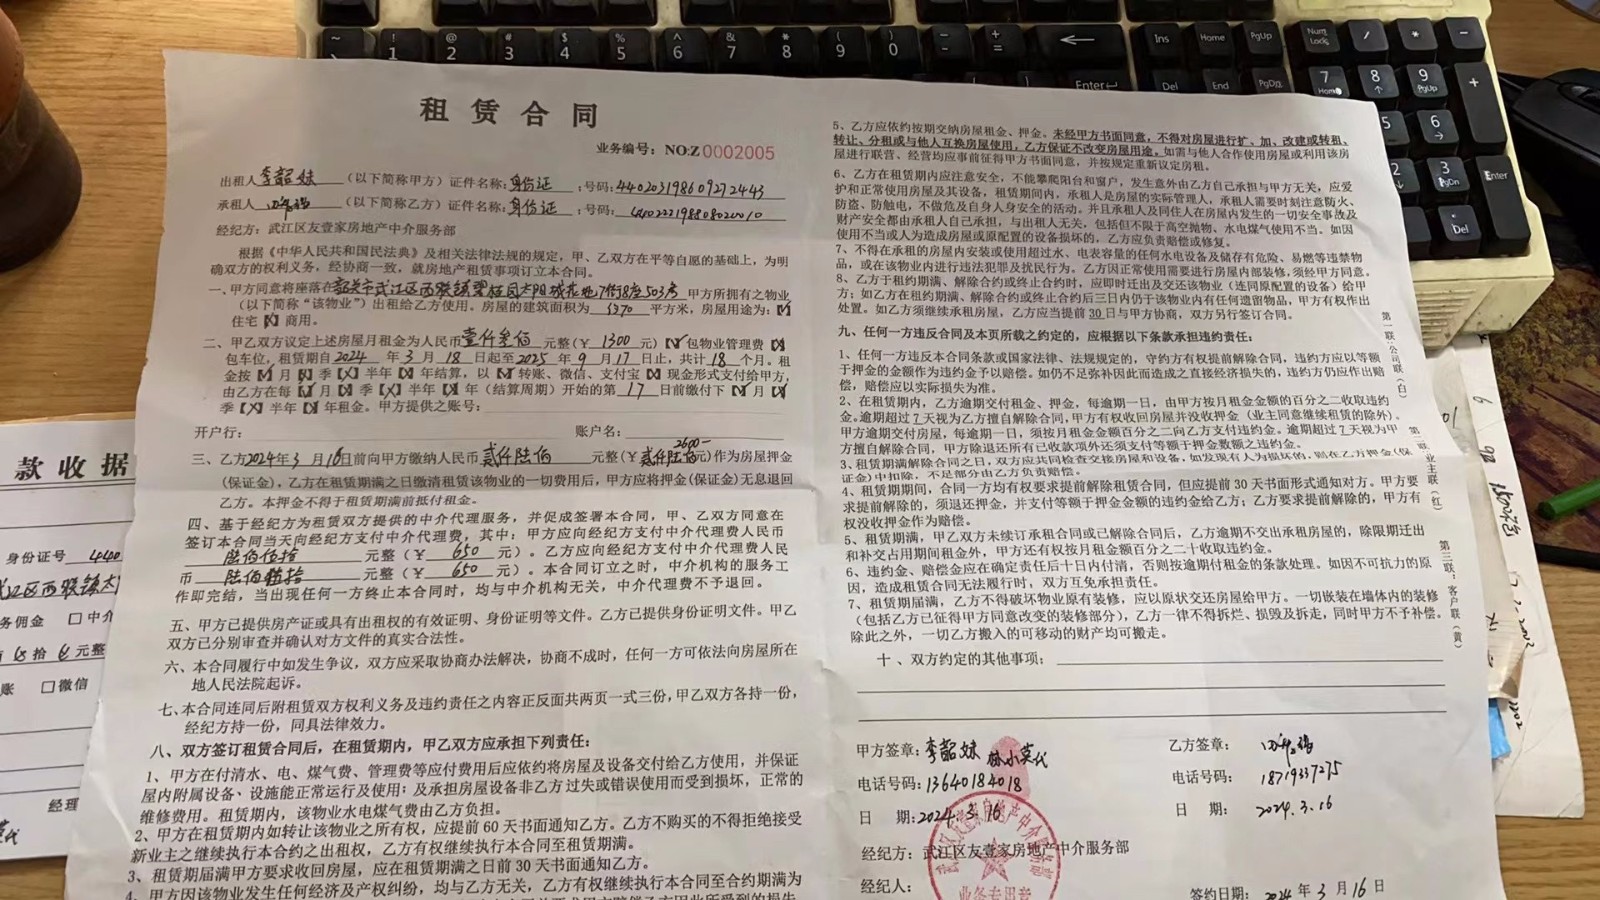 租赁合同
业务编号：NO:Z0002005
出租人 李韶妹 （以下简称甲方）证件名称:身份证 :号码:440203198609272443
承租人 （以下简称乙方）证件名称:身份证 :号码:
经纪方：武江区友壹家房地产中介服务部
根据《中华人民共和国民法典》及相关法律法规的规定，甲、乙双方在平等自愿的基础上，为明
确双方的权利义务，经协商一致，就房地产租赁事项订立本合同。
一、甲方同意将座落在韶关市武江区西联镇碧桂园太阳城花地7街8座503房 甲方所拥有之物业
（以下简称“该物业”）出租给乙方使用。房屋的建筑面积为 平方米，房屋用途为：【√】
住宅【X】商用。
二、甲乙双方议定上述房屋月租金为人民币壹仟叁佰 元整（￥ 1300 元）【√】包物业管理费【X】
包车位，租赁期自2024 年 3 月 18 日起至2025 年 9 月 17 日止，共计 18 个月。租
金按【√】月【X】季【X】半年【X】年结算，以【√】转账、微信、支付宝【X】现金形式支付给甲方，
由乙方在每【√】月【X】季【X】半年【X】年（结算周期）开始的第 17 日前缴付下【√】月【X】
季【X】半年【X】年租金。甲方提供之账号：
开户行： 账户名：
三、乙方2024年 3 月16日前向甲方缴纳人民币 贰仟陆佰 元整（￥ 贰仟陆佰元）作为房屋押金
2600-
(保证金)，乙方在租赁期满之日缴清租赁该物业的一切费用后，甲方应将押金(保证金)无息退回
乙方。本押金不得于租赁期满前抵付租金。
四、基于经纪方为租赁双方提供的中介代理服务，并促成签署本合同，甲、乙双方同意在
签订本合同当天向经纪方支付中介代理费，其中：甲方应向经纪方支付中介代理费人民币
陆佰伍拾 元整（￥ 650 元）。乙方应向经纪方支付中介代理费人民
币 陆佰伍拾 元整（￥ 650 元）。本合同订立之时，中介机构的服务工
作即完结，当出现任何一方终止本合同时，均与中介机构无关，中介代理费不予退回。
五、甲方已提供房产证或具有出租权的有效证明、身份证明等文件。乙方已提供身份证明文件。甲乙
双方已分别审查并确认对方文件的真实合法性。
六、本合同履行中如发生争议，双方应采取协商办法解决，协商不成时，任何一方可依法向房屋所在
地人民法院起诉。
七、本合同连同后附租赁双方权利义务及违约责任之内容正反面共两页一式三份，甲乙双方各持一份，
经纪方持一份，同具法律效力。
八、双方签订租赁合同后，在租赁期内，甲乙双方应承担下列责任：
1、甲方在付清水、电、煤气费、管理费等应付费用后应依约将房屋及设备交付给乙方使用，并保证
屋内附属设备、设施能正常运行及使用；及承担房屋设备非乙方过失或错误使用而受到损坏，正常的
维修费用。租赁期内，该物业水电煤气费由乙方负担。
2、甲方在租赁期内如转让该物业之所有权，应提前60天书面通知乙方。乙方不购买的不得拒绝接受
新业主之继续执行本合约之出租权，乙方有权继续执行本合同至租赁期满。
3、租赁期届满甲方要求收回房屋，应在租赁期满之日前30天书面通知乙方。
4、甲方因该物业发生任何经济及产权纠纷，均与乙方无关，乙方有权继续执行本合同至合约期满为
5、乙方应依约按期交纳房屋租金、押金、未经甲方书面同意，不得对房屋进行扩、加、改建或转租、
转让、分租或与他人互换房屋使用，乙方保证不改变房屋用途，如需与他人合作使用房屋或利用该房
屋进行联营、经营均应事前征得甲方书面同意，并按规定重新议定房租。
6、乙方在租赁期内应注意安全，不能攀爬阳台和窗户，发生意外由乙方自己承担与甲方无关，应爱
护和正常使用房屋及其设备，租赁期间内，承租人是房屋的实际管理人，承租人需要时刻注意防火、
防盗、防触电，不做危及自身人身安全的活动。并且承租人及同住人在房屋内发生的一切安全事故及
财产安全都由承租人自己承担，与出租人无关，包括但不限于高空抛物、水电煤气使用不当。如因
使用不当或人为造成房屋或原配置的设备损坏的，乙方应负责赔偿或修复。
7、不得在承租的房屋内安装或使用超过水、电表容量的任何水电设备及储存有危险、易燃等违禁物
品，或在该物业内进行违法犯罪及扰民行为。乙方因正常使用需要进行房屋内部装修，须经甲方同意。
8、乙方于租约期满、解除合约或终止合约时，应即时迁出及交还该物业（连同原配置的设备）给甲
方；如乙方在租约期满、解除合约或终止合约后三日内仍于该物业内有任何遗留物品，甲方有权作出
处置。如乙方须继续承租房屋，乙方应当提前30日与甲方协商，双方另行签订合同。
九、任何一方违反合同及本页所载之约定的，应根据以下条款承担违约责任：
1、任何一方违反本合同条款或国家法律、法规规定的，守约方有权提前解除合同，违约方应以等额
于押金的金额作为违约金予以赔偿。如仍不足弥补因此而造成之直接经济损失的，违约方仍应作出赔
偿，赔偿应以实际损失为准。
2、在租赁期内，乙方逾期交付租金、押金，每逾期一日，由甲方按月租金金额的百分之二收取违约
金。逾期超过7天视为乙方擅自解除合同，甲方有权收回房屋并没收押金（业主同意继续租赁的除外）。
甲方逾期交付房屋，每逾期一日，须按月租金金额百分之二向乙方支付违约金。逾期超过7天视为甲
方擅自解除合同，甲方除退还所有已收款项外还须支付等额于押金数额之违约金。
3、租赁期满解除合同之日，双方应共同检查交接房屋和设备，如发现有人为损坏的，则在乙方押金（保
证金)中扣除，不足部分由乙方负责赔偿。
4、租赁期期间，合同一方均有权要求提前解除租赁合同，但应提前30天书面形式通知对方。甲方要
求提前解除的，须退还押金，并支付等额于押金金额的违约金给乙方；乙方要求提前解除的，甲方有
权没收押金作为赔偿。
5、租赁期满，甲甲双方未续订承租合同或已解除合同后，乙方逾期不交出承租房屋的，除限期迁出
和补交占用期间租金外，甲方还有权按月租金额百分之二十收取违约金。
6、违约金、赔偿金应在确定责任后十日内付清，否则按逾期付租金的条款处理。如因不可抗力的原
因，造成租赁合同无法履行时，双方互免承担责任。
7、租赁期届满，乙方不得破坏物业原有装修，应以原状交还房屋给甲方。一切嵌装在墙体内的装修
（包括乙方已征得甲方同意改变的装修部分），乙方一律不得拆烂、损毁及拆走，同时甲方不予补偿。
除此之外，一切乙方搬入的可移动的财产均可搬走。
十、双方约定的其他事项：
甲方签章：李韶妹 林小英代
电话号码：13640184018
日 期：2024.3.16
乙方签章：
电话号码：18719337275
日 期：2024.3.16
经纪方：武江区友壹家房地产中介服务部
经纪人：
签约日期：2024年3月16日
业务专用章
第一联：公司联（白）
第二联：业主联（红）
第三联：客户联（黄）
款收据
身份证号 440
武江区西联镇太
务佣金 □中介
拾 元整
账 □微信
经理